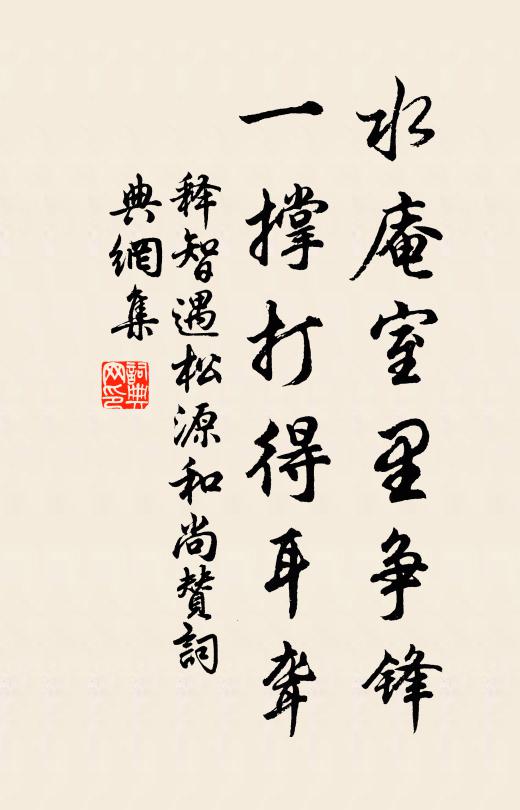 水庵室里争锋
一撑打得耳聋
释智遇松源和尚赞詞
典網集
詞典网印